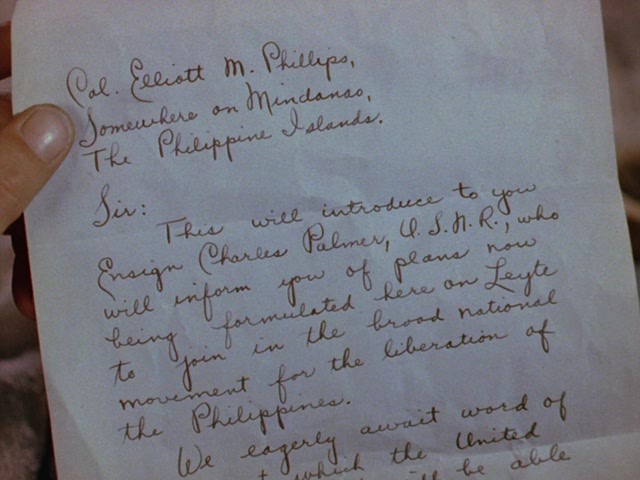 Col. Elliott M. Phillips,
Somewhere on Mindanao,
The Philippine Islands.
Sir:
This will introduce to you
Ensign Charles Palmer, U.S.N.R., who
will inform you of plans now
being formulated here on Leyte
to join in the broad national
movement for the liberation of
the Philippines.
We eagerly await word of
which the United
be able